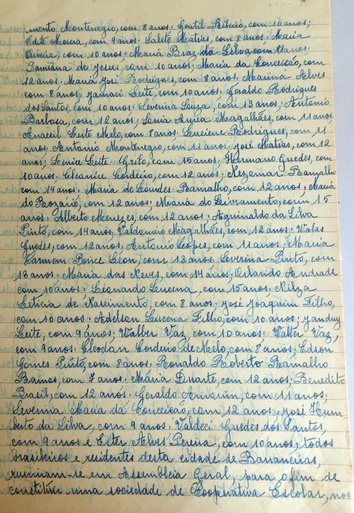 mento Montenegro, com 8 anos; Gentil Ribeiro, com 10 anos;
Edit Moura, com 9 anos; Salete Matias, com 8 anos; Maria
Garcia, com 10 anos; Maria Braz da Silva, com 11 anos;
Damiana de Jesus, com 10 anos; Maria da Conceição, com
12 anos; Maria José Rodrigues, com 8 anos; Marina Alves
com 8 anos; Jamaci Leite, com 10 anos; Geraldo Rodrigues
dos Santos, com 10 anos; Severina Souza, com 13 anos; Antônio
Barbosa, com 12 anos; Sonia Magalhães, com 11 anos
Leite Melo, com 7 anos; Luciene Rodrigues, com 11
anos; Antonio Montenegro, com 11 anos; José Matias, com 12
anos; Sonia Leite Grilo, com 15 anos; Hermano Guedes, com
10 anos; Cleanice Cordeiro, com 12 anos; Ramalho
com 14 anos; Maria de Lourdes Ramalho, com 12 anos; Maria
do Rosário, com 12 anos; Maria do Livramento, com 15
anos; Alberto Menezes, com 12 anos; Aguinaldo da Silva
Pinto, com 14 anos; Valdemir Magalhães, com 12 anos;
Guedes, com 12 anos; Antonio Lopes, com 11 anos; Maria
Carmen Ponce Léon, com 13 anos; Severina Pinto, com
13 anos; Maria das Neves, com 14 anos; Orlando Andrade
com 10 anos; Leonardo Lucena, com 15 anos; Nilza
Letícia do Nascimento, com 8 anos; José Joaquim Filho,
com 10 anos; Adelson Lucena Filho, com 10 anos; Janduy
Leite, com 9 anos; Walber Vaz, com 10 anos; Vaz,
com 9 anos; Cleodan Cordeiro de Melo, com 7 anos; Edson
Gomes Pinto, com 8 anos; Ronaldo Roberto Ramalho
Ramos, com 7 anos; Maria Duarte, com 12 anos; Benedito
Brasil, com 12 anos; Geraldo Amorim, com 11 anos;
Severina Maria da Conceição, com 12 anos; José Hum
berto da Silva, com 9 anos; Valdeci Guedes dos Santos,
com 9 anos e Ester Alves Pereira, com 10 anos; todos
brasileiros e residentes desta cidade de Bananeiras,
reuniram-se em Assembléia Geral, para o fim de
constituir uma sociedade de Cooperativa Escolar, nos